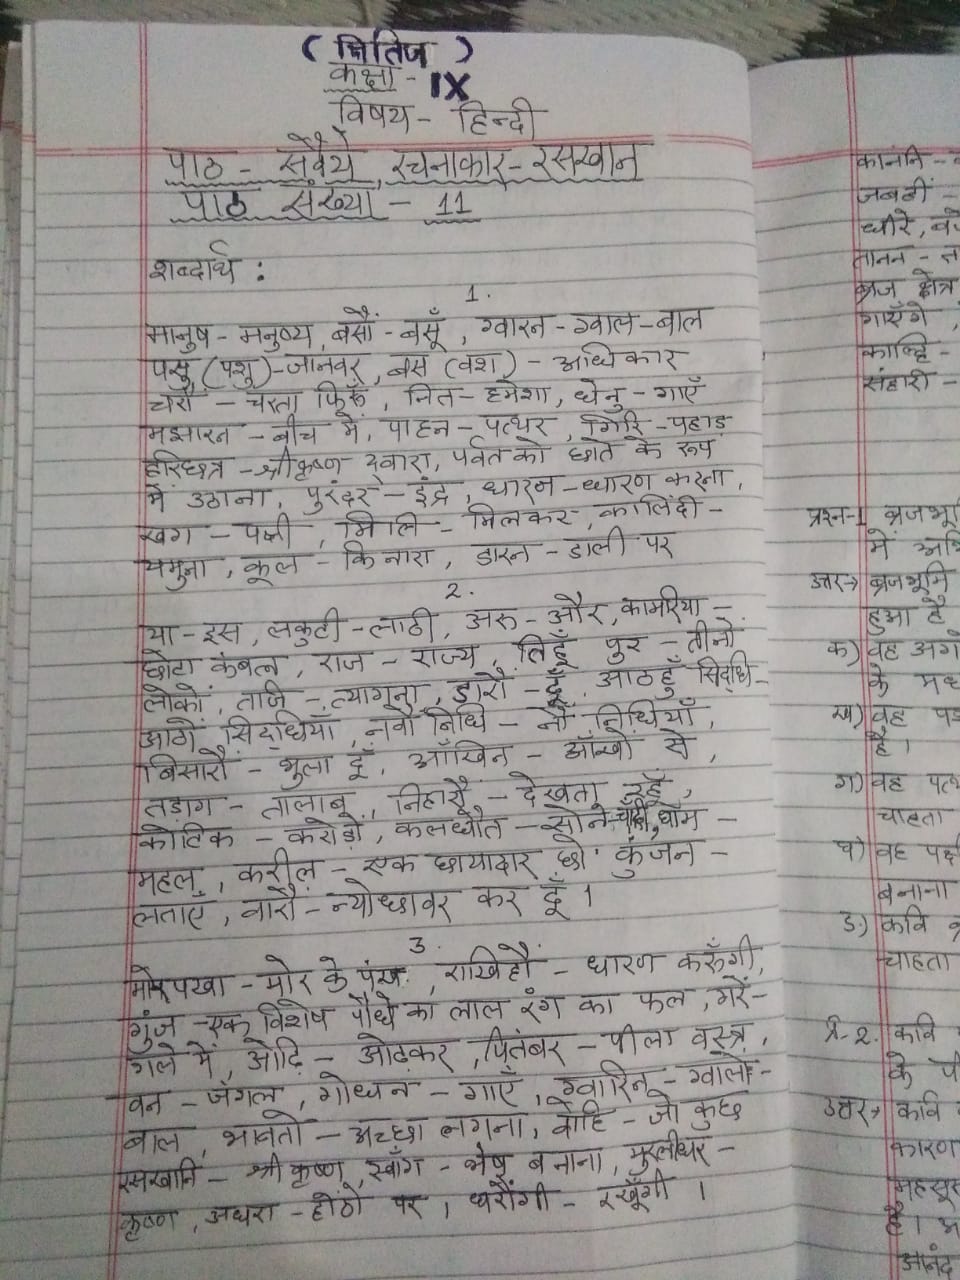 ( क्षितिज )
कक्षा - IX
विषय - हिन्दी
पाठ - सवैये, रचनाकार - रसखान
पाठ संख्या - 11
शब्दार्थ :
1.
मानुष - मनुष्य, बसौं - बसूँ, ग्वारन - ग्वाल-बाल
पसु (पशु) - जानवर, बस (वश) - अधिकार
चरौं - चरता फिरूँ, नित - हमेशा, धेनु - गाएँ
मझारन - बीच में, पाहन - पत्थर, गिरि - पहाड़
हरिछत्र - श्रीकृष्ण द्वारा, पर्वत को छाते के रूप
में उठाना, पुरंदर - इंद्र, धारन - धारण करना,
खग - पक्षी, मिलि - मिलकर, कालिंदी -
यमुना, कूल - किनारा, डारन - डाली पर
2.
या - इस, लकुटी - लाठी, अरु - और, कामरिया -
छोटा कंबल, राज - राज्य, तिहूँ पुर - तीनों
लोकों, तजि - त्यागना, डारौं - दूँ, आठहुँ सिद्धि -
आठों सिद्धियाँ, नवों निधि - नौ निधियाँ,
बिसारौं - भुला दूँ, आँखिन - आँखों से,
तड़ाग - तालाब, निहारूँ - देखता रहूँ,
कोटिक - करोड़ों, कलधौत - सोने-चाँदी, धाम -
महल, करील - एक छायादार कुंजन -
लताएँ, वारौं - न्योछावर कर दूँ ।
3.
मोरपखा - मोर के पंख, राखिहौं - धारण करूँगी,
गुंज - एक विशेष पौधे का लाल रंग का फल, गरें -
गले में, ओढ़ि - ओढ़कर, पितंबर - पीला वस्त्र,
वन - जंगल, गोधन - गाएँ, ग्वारिन - ग्वालों -
बाल, भावतो - अच्छा लगना, वोहि - जो कुछ
रसखानि - श्री कृष्ण, स्वाँग - भेष बनाना, मुरलीधर -
कृष्ण, अधरा - होठों पर, धरौंगी - रखूँगी ।
काननि -
जबहीं -
धीरे,
तानन -
ब्रज क्षेत्र
गाएँगे,
काल्हि -
संहारी -
प्रश्न-1
में
उत्तर→ ब्रजभूमि
हुआ है
क) वह
के
ख) वह
है।
ग) वह
चाहता
घ) वह
बनाना
ङ) कवि
चाहता
प्र-2. कवि
के
उत्तर→ कवि
कारण
है।
आनंद